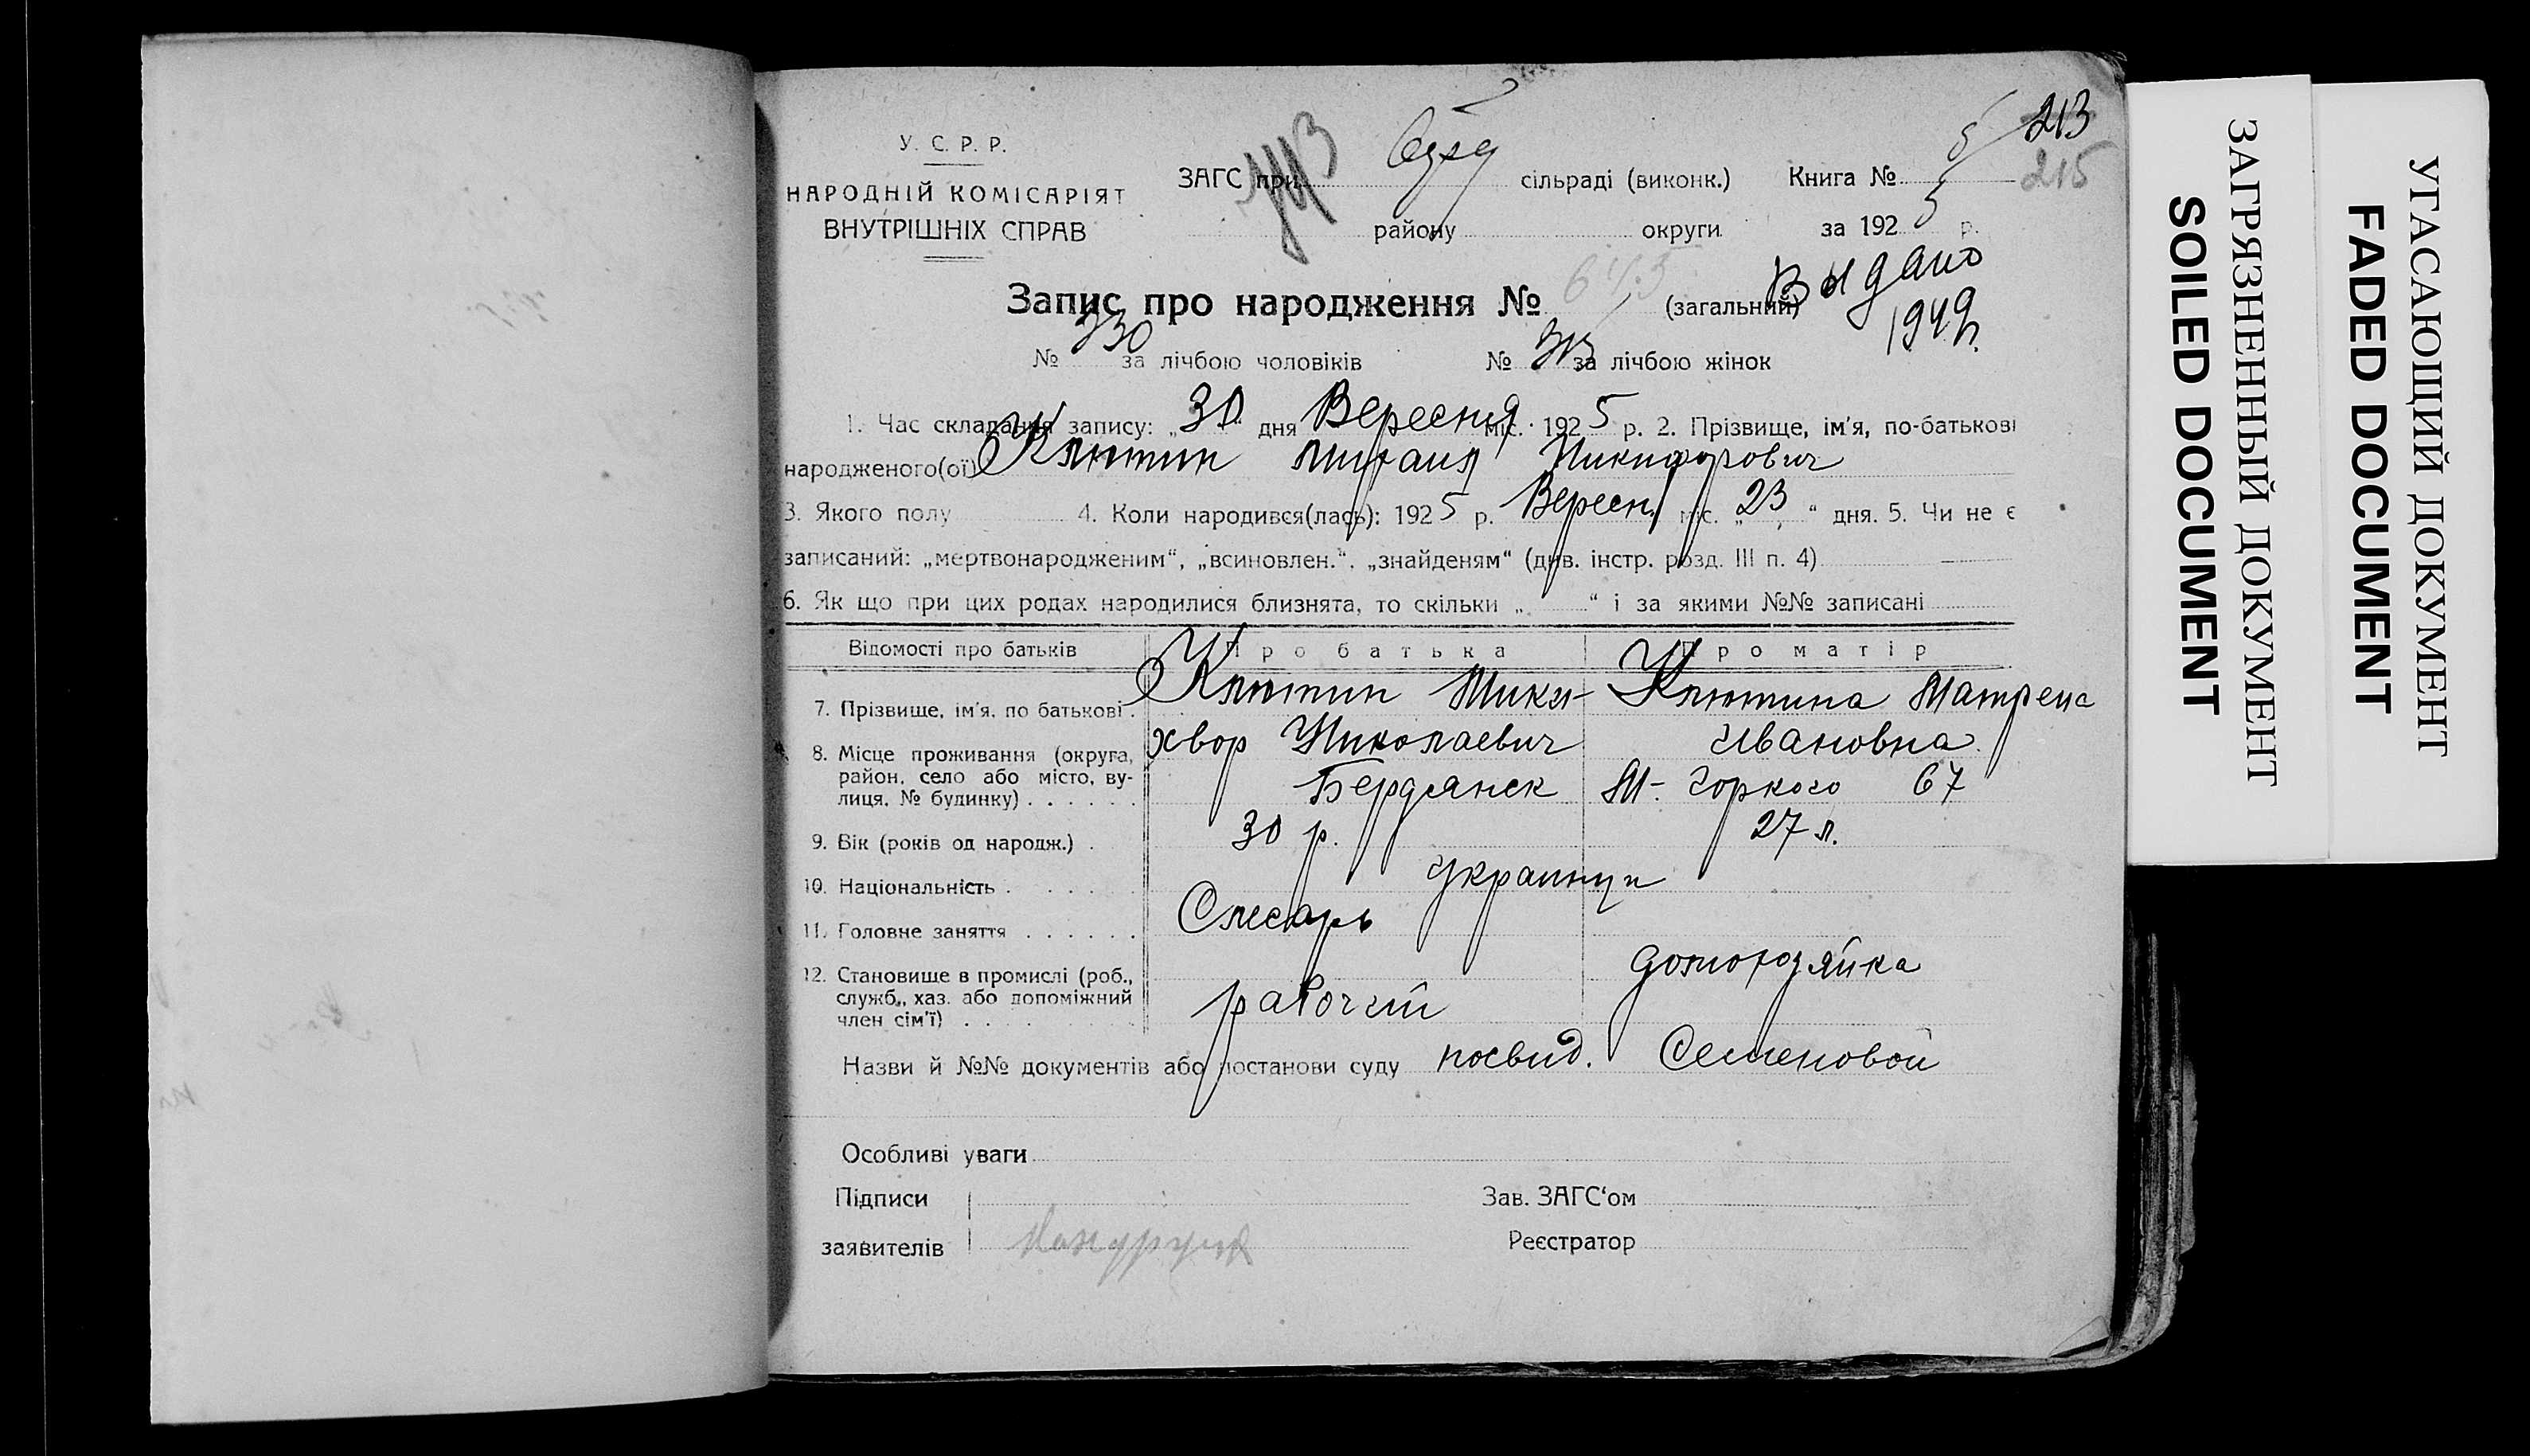 213
215
У. С. Р. Р.
НАРОДНІЙ КОМІСАРІЯТ
ВНУТРІШНІХ СПРАВ
ЗАГС при сільраді (виконк.) Книга № 5
району округи за 1925 р.
Выдано
1949г.
Запис про народження № 643 (загальний)
№ 330 за лічбою чоловіків № 313 за лічбою жінок
1. Час складання запису: „30“ дня Вересня міс. 1925 р. 2. Прізвище, ім'я, по-батькові
народженого(ої) Клютин Михаил Никифорович
3. Якого полу 4. Коли народився(лась): 1925 р. Вересн. міс. „23“ дня. 5. Чи не є
записаний: „мертвонародженим“, „всиновлен.“, „знайденям“ (див. інстр. розд. III п. 4)
6. Як що при цих родах народилися близнята, то скільки „ “ і за якими №№ записані
Відомості про батьків Про батька Про матір
7. Прізвище, ім'я, по батькові. Клютин Мики- Клютина Матрена
хвор Николаевич Ивановна
8. Місце проживання (округа, район, село або місто, ву-лиця, № будинку) Бердянск М. Горкого 67
9. Вік (років од народж.) 30 р. 27 л.
10. Національність украинци
11. Головне заняття Слесарь
домохозяйка
12. Становище в промислі (роб., служб., хаз. або допоміжний член сім'ї) рабочий
Назви й №№ документів або постанови суду посвид. Семеновой
Особливі уваги
Підписи Зав. ЗАГС'ом
заявителів Реєстратор
ЗАГРЯЗНЕННЫЙ ДОКУМЕНТ
SOILED DOCUMENT
УГАСАЮЩИЙ ДОКУМЕНТ
FADED DOCUMENT